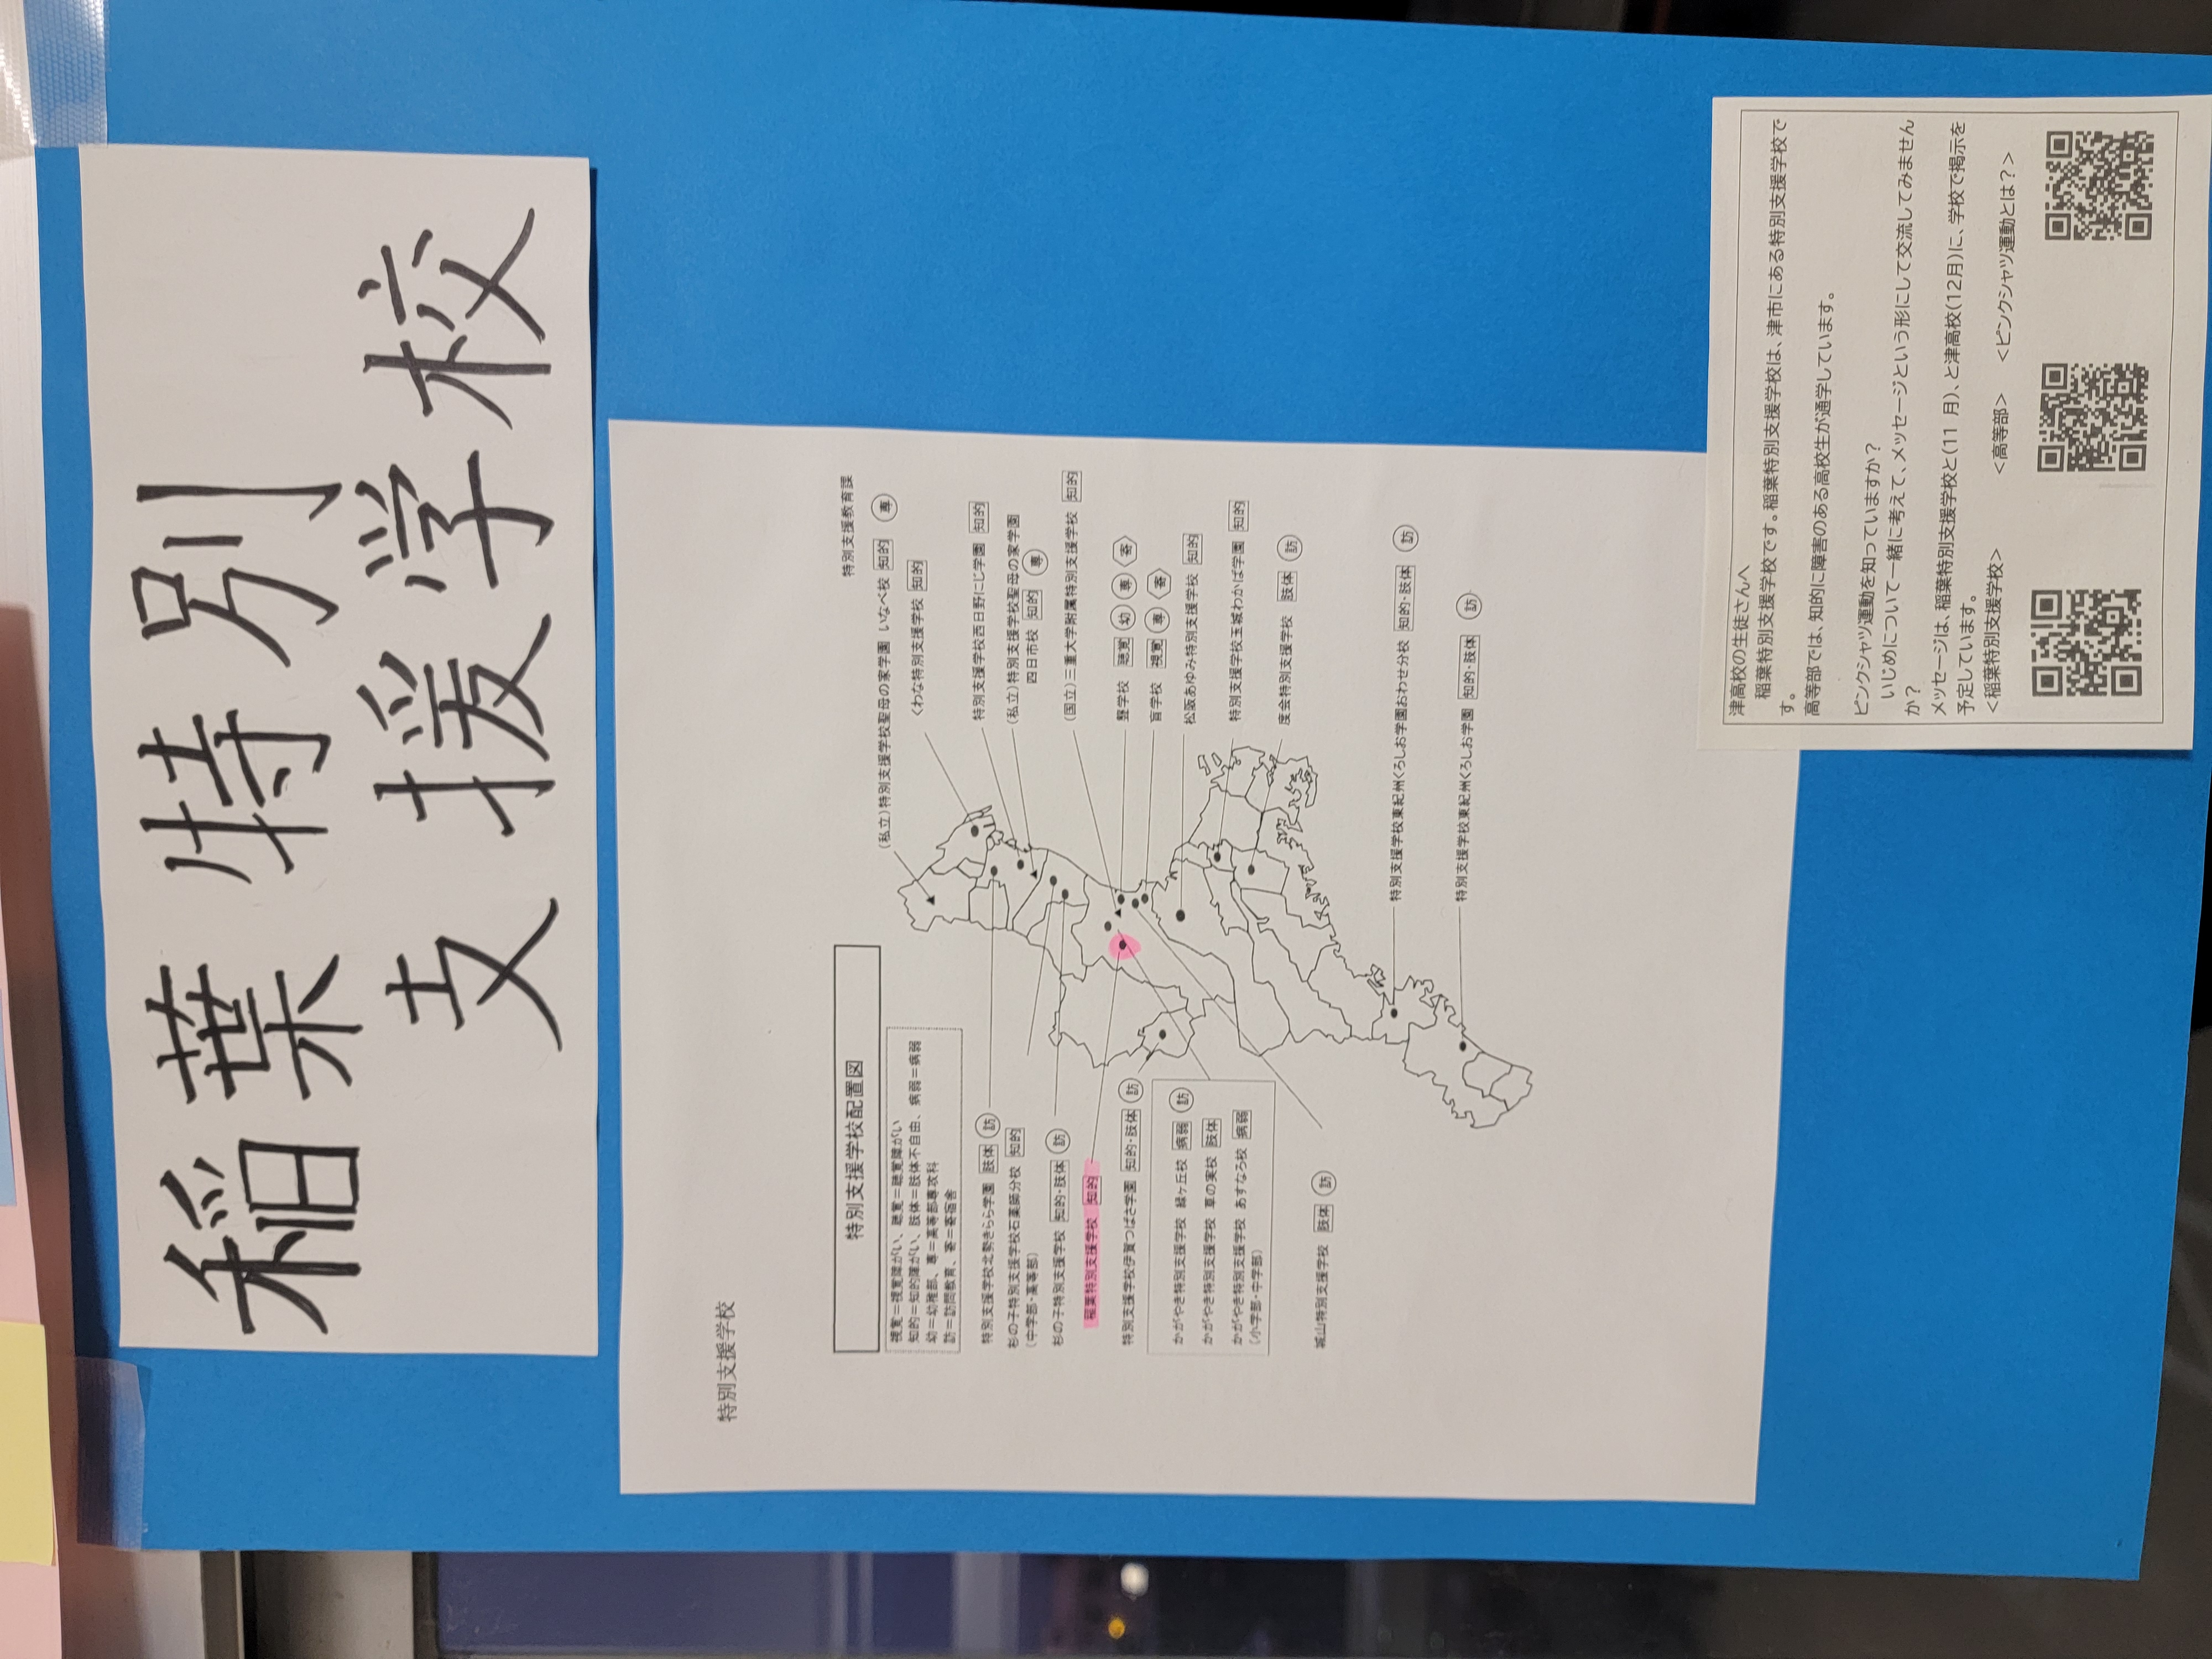 稲葉特別
支援学校
特別支援学校
特別支援学校配置図
特別支援教育課
視覚＝視覚障がい、聴覚＝聴覚障がい
知的＝知的障がい、肢体＝肢体不自由、病弱＝病弱
幼＝幼稚部、専＝高等部専攻科
訪＝訪問教育、寄＝寄宿舎
(私立)特別支援学校聖母の家学園 いなべ校 知的 専
くわな特別支援学校 知的
特別支援学校西日野にじ学園 知的
(私立)特別支援学校聖母の家学園
四日市校 知的 専
(国立)三重大学附属特別支援学校 知的
聾学校 聴覚 幼 専 寄
盲学校 視覚 専 寄
松阪あゆみ特別支援学校 知的
特別支援学校玉城わかば学園 知的
度会特別支援学校 肢体 訪
特別支援学校東紀州くろしお学園おわせ分校 知的・肢体 訪
特別支援学校東紀州くろしお学園 知的・肢体 訪
特別支援学校北勢きらら学園 肢体 訪
杉の子特別支援学校石薬師分校 知的
(中学部・高等部)
杉の子特別支援学校 知的・肢体 訪
稲葉特別支援学校 知的
特別支援学校伊賀つばさ学園 知的・肢体 訪
かがやき特別支援学校 緑ヶ丘校 病弱 訪
かがやき特別支援学校 草の実校 肢体
かがやき特別支援学校 あすなろ校 病弱
(小学部・中学部)
城山特別支援学校 肢体 訪
津高校の生徒さんへ
稲葉特別支援学校です。稲葉特別支援学校は、津市にある特別支援学校で
す。
高等部では、知的に障害のある高校生が通学しています。
ピンクシャツ運動を知っていますか？
いじめについて一緒に考えて、メッセージという形にして交流してみません
か？
メッセージは、稲葉特別支援学校と(11 月)、と津高校(12月)に、学校で掲示を
予定しています。
＜稲葉特別支援学校＞ ＜高等部＞ ＜ピンクシャツ運動とは？＞